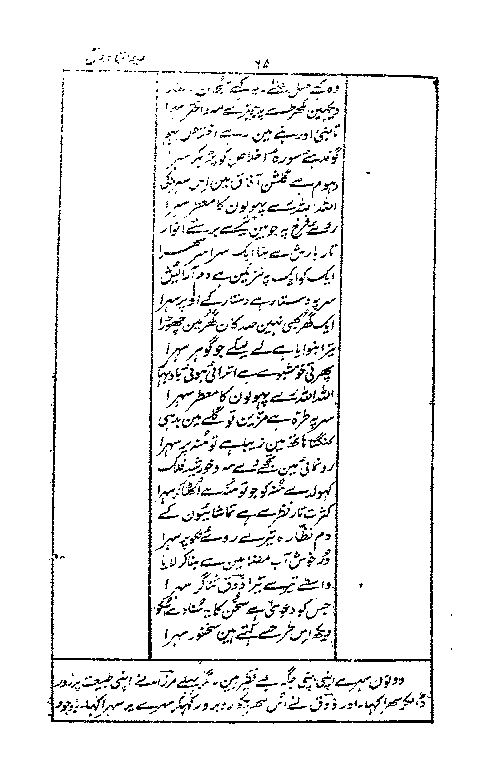 ۶۵
وہ کہے صل علیٰ یہ کہے سبحان
دیکہین مکھڑے پہ جو تیرے مہ و اختر سہرا
تابنی اور بنے مین رہے اخلاص بہم
گوندہئے سورۂ اخلاص کو پڑہکر سہرا
دہوم ہے گلشن آفاق مین اس سہرے کی
اللہ اللہ رے پہولون کا معطر سہرا
روئے فرخ پہ جو ہین تیرے برستے انوار
تار بارش سے بنا ایک سراسر سہرا
ایک کو ایک پہ تزئین ہے دم آرائش
سر پہ دستار ہے دستار کے اوپر سہرا
ایک گہر بھی نہین صد کان گہر مین چہوڑا
تیرا بنوایا ہے لے لیکے جو گوہر سہرا
پھرتی خوشبو سے ہے اترائی ہوئی باد بہار
اللہ اللہ رے پہولون کا معطر سہرا
سر پہ طرہ ہے مزین تو گلے مین بدہی
کنگنا ہاتھ مین زیبا ہے تو منہ پر سہرا
رونمائی مین تجھے دے مہ و خورشید فلک
کہولدے منہ کو جو تو منہ سے اٹھا کر سہرا
کثرت تار نظر سے ہے تماشائیون کے
دم نظارہ تیرے روئے نکو پر سہرا
در خوش آب مضامین سے بنا کر لایا
واسطے تیرے تیرا ذوق ثناگر سہرا
جس کو دعویٰ ہے سخن کا یہ سنادے اسکو
دیکھ اس طرح سے کہتے ہین سخنور سہرا
دونون سہرے اپنی اپنی جگہ بے نظیر ہین۔ مگر پہلے مرزا نے اپنی طبیعت پر زور
سہرا کہا۔ اور ذوق نے اس سہرے پر سہرا کہا۔ باوجود